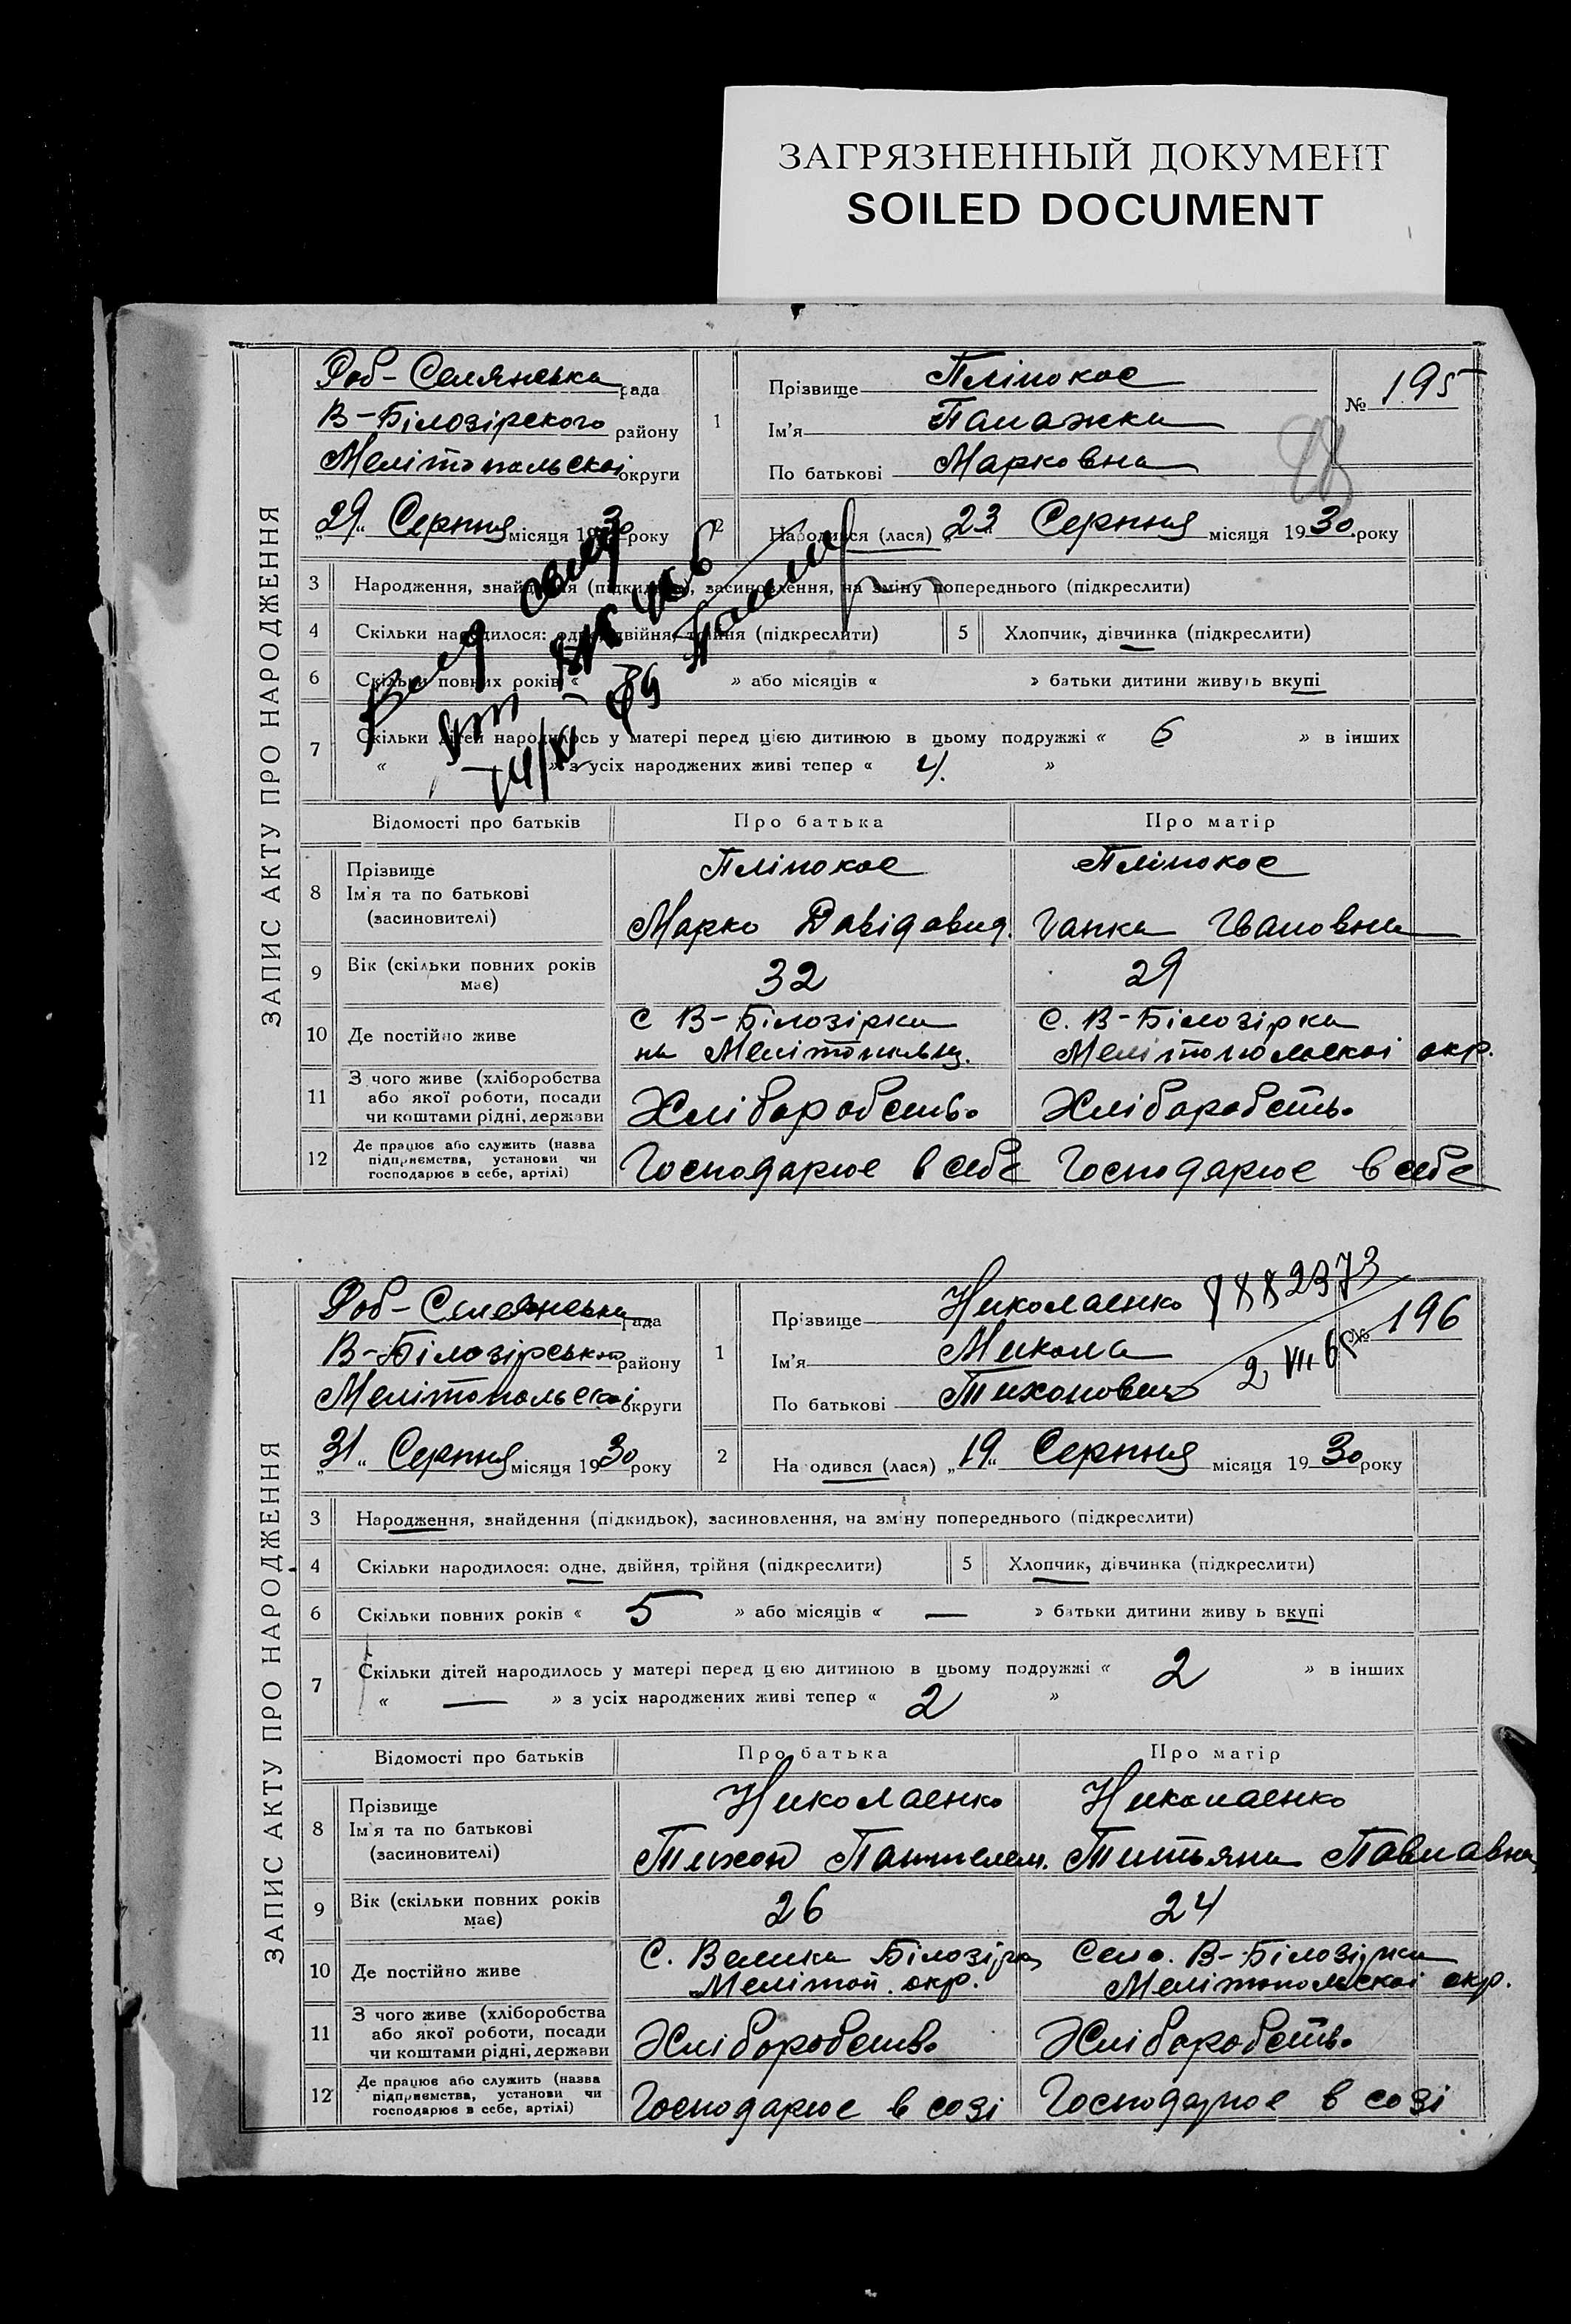 ЗАГРЯЗНЕННЫЙ ДОКУМЕНТ
SOILED DOCUMENT
ЗАПИС АКТУ ПРО НАРОДЖЕННЯ
Роб-Селянська рада
В-Білозірского району
Мелітопольскоі округи
„29“ Серпня місяця 1930 року
1 Прізвище Плінокос
Ім'я Палажка
По батькові Марковна
№ 195
2 Народився (лася) „23“ Серпня місяця 1930 року
3 Народження, знайдення (підкидьок), засиновлення, на зміну попереднього (підкреслити)
4 Скільки народилося: одне, двійня, трійня (підкреслити)
5 Хлопчик, дівчинка (підкреслити)
6 Скільки повних років « » або місяців « » батьки дитини живуть вкупі
7 Скільки дітей народилось у матері перед цією дитиною в цьому подружжі « 6 » в інших
« » з усіх народжених живі тепер « 4. »
Відомості про батьків Про батька Про матір
8 Прізвище
Ім'я та по батькові
(засиновителі)
Плінокос Плінокос
Марко Давідович. Ганна Івановна
9 Вік (скільки повних років має) 32 29
10 Де постійно живе
С В-Білозірка С. В-Білозірка
на Мелітопильщ. Мелітопольскоі окр.
11 З чого живе (хліборобства
або якої роботи, посади
чи коштами рідні, держави
Хліборобств. Хліборобств.
12 Де працює або служить (назва
підприємства, установи чи
господарює в себе, артілі)
Господарює в себе Господарює в себе
ЗАПИС АКТУ ПРО НАРОДЖЕННЯ
Роб-Селянська рада
В-Білозірського району
Мелітопольскоі округи
„31“ Серпня місяця 1930 року
1 Прізвище Николаенко
Ім'я Микола
По батькові Тихонович
882373
№ 196
2 Народився (лася) „19“ Серпня місяця 1930 року
3 Народження, знайдення (підкидьок), засиновлення, на зміну попереднього (підкреслити)
4 Скільки народилося: одне, двійня, трійня (підкреслити)
5 Хлопчик, дівчинка (підкреслити)
6 Скільки повних років « 5 » або місяців « — » батьки дитини живуть вкупі
7 Скільки дітей народилось у матері перед цією дитиною в цьому подружжі « 2 » в інших
« — » з усіх народжених живі тепер « 2 »
Відомості про батьків Про батька Про матір
8 Прізвище
Ім'я та по батькові
(засиновителі)
Николаенко Николаенко
Тихон Пантелем. Титьяна Павлавна
9 Вік (скільки повних років має) 26 24
10 Де постійно живе
С. Велика Білозірка Село. В-Білозірка
Мелітоп. окр. Мелітопольскоі окр.
11 З чого живе (хліборобства
або якої роботи, посади
чи коштами рідні, держави
Хліборобств. Хліборобств.
12 Де працює або служить (назва
підприємства, установи чи
господарює в себе, артілі)
Господарює в созі Господарює в созі